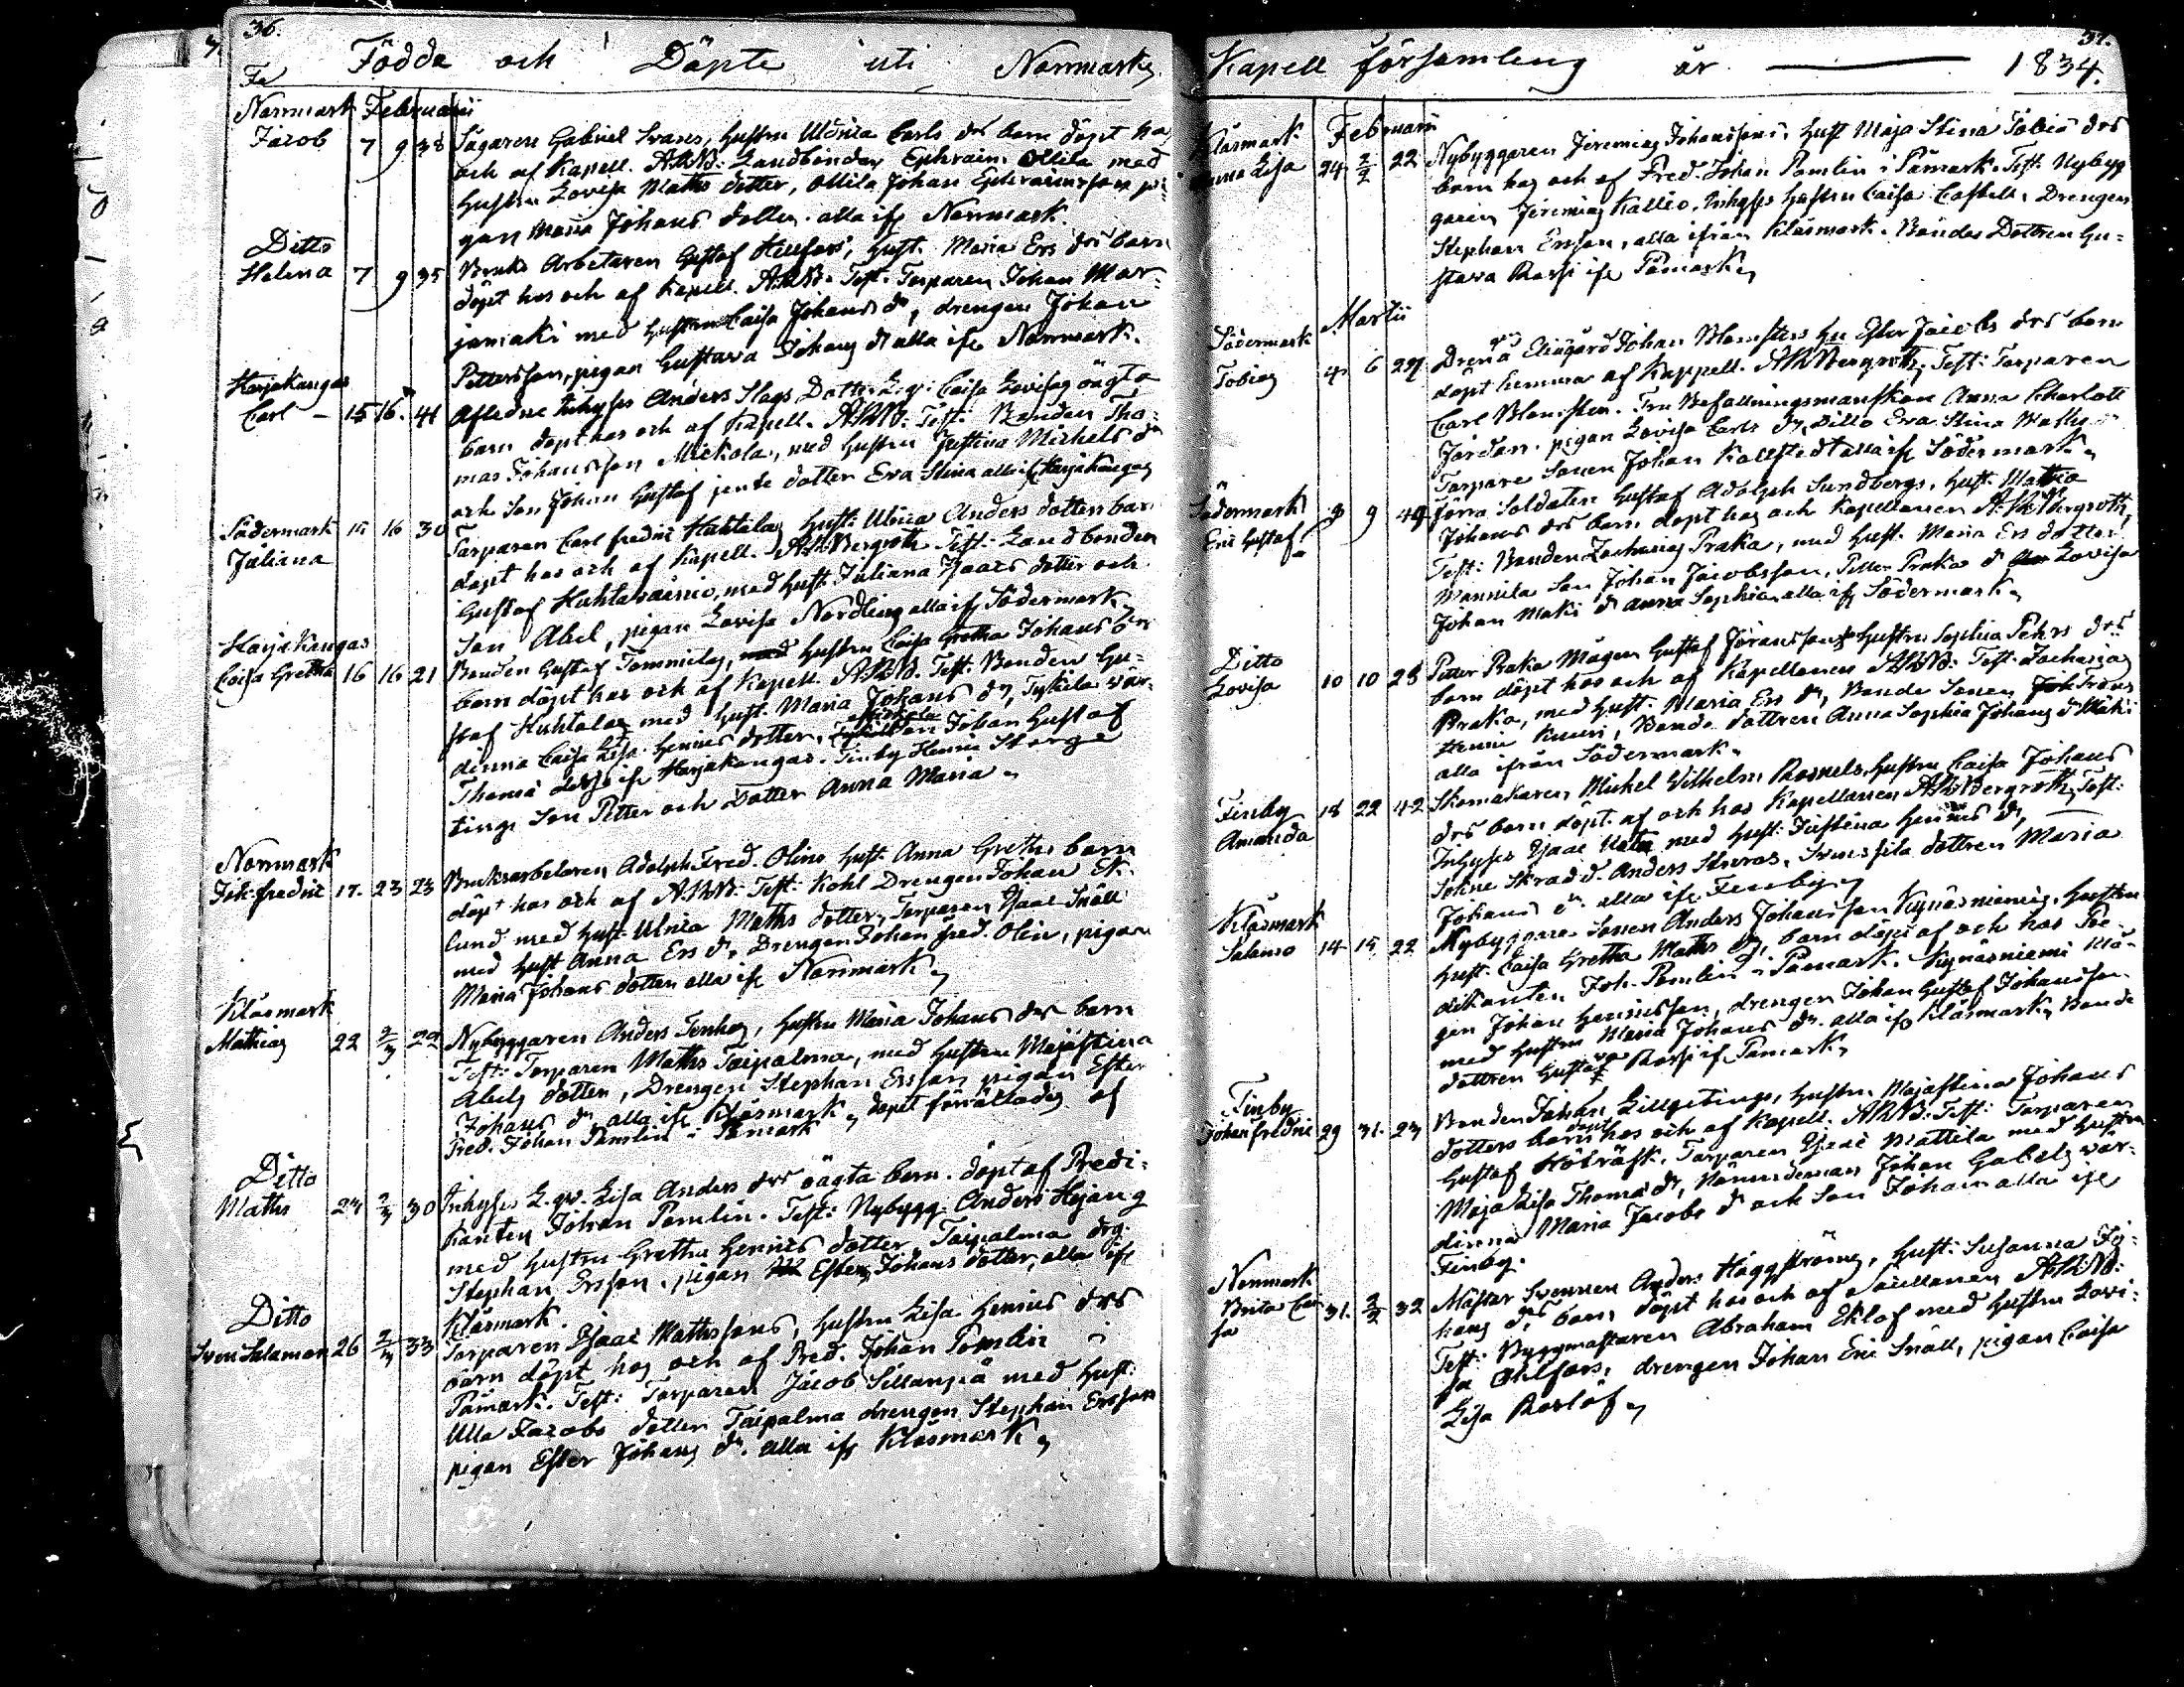 36.
Födde och Döpte uti Norrmarks
Norrmark Februarii
Jacob 7 9 38 Sågaren Gabriel Svans, Hustru Ulrica Carls drs barn döpt hos
och af Kapell. AKNB: Landbonden Ephraim Ollila med
Hustru Lovisa Maths dotter, Ollila Johan Ephraimsson pi-
gan Maria Johans dotter. alla ifr Norrmark.
Ditto
Helena 7 9 35 Bruks Arbetaren Gustaf Hellfors, Hust. Maria Ers drs barn
döpt hos och af Kapell. Test. Torparen Johan Mar-
jamäki med Hustru Caisa Johans dr, drengen Johan
Pettersson, pigan Gustava Johans dr alla ifr Norrmark.
Harjakangas
Carl - 15 16. 41 Afledne Inhyses Anders Slags Dotter L.q: Caisa Lovisas oägta
barn döpt hos och af Kapell. Test: Bonden Tho-
mas Johansson Mickola, med Hustru Justina Michels dr
och Son Johan Gustaf jemte dotter Eva Stina alla ifr Harjakangas
Södermark 15 16 30 Torparen Carl Fredric Huhtalas Hust: Ulrica Anders dotters barn
Juliana döpt hos och af Kapell. Bergroth Test: Landbonden
Gustaf Huhtavainio, med Hust. Juliana Isaacs dotter och
Son Abel, pigan Lovisa Nordling alla ifr Södermark
Harjakangas
Caisa Gretha 16 16 21 Bonden Gustaf Tommilas, Hustru Caisa Gretha Johans drs
barn döpt hos och af Kapell. Test. Bonden Gu-
staf Huhtala med Hust. Maria Johans dr, Tyskila vär-
dinna Caisa Lisa Henrics dotter, Johan Gustaf
Thomæ ifr Harjakangas. Finby Henric Storge
tings Son Petter och Dotter Anna Maria
Norrmark
Joh: Fredric 17. 23 23 Bruksarbetaren Adolph Fred. Olins Hust. Anna Grethas barn
döpt hos och af Test: Kohl Drengen Johan Ek-
lund med Hust. Ulrica Maths dotter, Torparen Isaac Snäll
med Hust Anna Ers dr, Drengen Johan Fred. Olin, pigan
Maria Johans dotter alla ifr Norrmark
Klåsmark
Mathias 22 2/3 22 Nybyggaren Anders Tenhos, Hustru Maria Johans drs barn
Test: Torparen Maths Taipalma, med Hustru Maja Stina
Abels dotter, Drengen Stephan Ersson pigan Ester
Johans dr alla ifr Klåsmark, döpt förrättades af
Pred. Johan Pamlin i Påmark
Ditto
Maths 24 2/3 30 Inhyses L.qv. Lisa Anders drs oägta barn. döpt af Predi-
kanten Johan Pamlin. Test: Nybygg. Anders
med Hustru Gretha Henrics dotter Taipalma drg.
Stephan Ersson, pigan Ester Johans dotter, alla ifr
Klåsmark.
Ditto
Sven Salamon 26 2/3 33 Torparen Isaac Mathssons, Hustru Lisa Henrics drs
barn döpt hos och af Pred. Johan Pamlin i
Påmark. Test: Torparen Jacob Sillanpää med Hust:
Ulla Jacobs dotter Taipalma drengen Stephan Ersson
pigan Ester Johans dr. alla ifr Klåsmark
37.
Kapell församling år — 1834.
Klåsmark Februarii
Anna Lisa 24 2/2 22 Nybyggaren Jeremias Johanssons, Hust Maja Stina Tobias drs
barn hos och af Pred. Johan Pamlin i Påmark. Test: Nybyg
garen Jeremias Kallio, Inhyses Hustru Caisa Drengen
Stephan Ersson, alla ifrån Klåsmark. Bondes Dottren Gu-
stava Rassi ifr Påmark
Martii
Södermark
Tobias 4 6 29 Johan Blomsters Hu Ester Jacobs drs barn
döpt hemma af Kappell. Bergroth, Test: Torparen
Carl Blomster. Fru Befallningsmanskan Anna Charlott
Jordan. pigan Lovisa Carls dr, Ditto Eva Stina Maths dr
Torpare Sonen Johan Kallstedt alla ifr Södermark
Södermark 8 9 49 Förra Soldaten Gustaf Adolph Sundbergs, Hust: Mathia
Eric Gustaf Johans drs barn döpt hos och Kapellanen Bergroth,
Test: Bonden Zacharias Praka, med Hust. Maria Ers dotter,
Mannila Son Johan Jacobsson, Petter Praka dr Lovisa
Johan Maki dr Anna Sophia, alla ifr Södermark
Ditto
Lovisa 10 10 28 Petter Praka Mågen Gustaf Göranssons Hustru Sophia Pehrs drs
barn döpt hos och af Kapellanen Test: Zacharias
Praka, med Hust: Maria Ers dr, Bonde Sonen
Henric Kuuri, Bonde dottren Anna Sophia Johans dr Mäki
alla ifrån Södermark
Finby 18 22 42 Skomakaren Michel Wilhelm Rosnels, Hustru Caisa Johans
Amanda drs barn döpt. af och hos Kapellanen Bergroth, Test:
Inhyses Isaac med Hust: Justina Henrics dr,
Sokne Skrädd. Anders dottren Maria
Johans dr. alla ifr Finby
Klåsmark
Salomo 14 15 22 Nybyggare Sonen Anders Johansson Kynäsniemis, Hustru
Hust: Caisa Gretha Maths drs, barn döpt af och hos Pre-
dikanten Joh. Pamlin i Påmark. Kynäsniemi Må-
gen Johan Henricsson, drengen Johan Gustaf Johansson
med Hustru Maria Johans dr. alla ifr Klåsmark, Bonde
dottren Gustava Rassi ifr Påmark
Finby
Johan Fredric 29 31. 23 Bonden Johan Lillgetings, Hustru Maja Stina Johans
dotters barn döpt hos och af Kapell. Test: Torparen
Gustaf Torparen Isaac Mattila med Hustru
Maja Lisa Thomæ dr, Nämndeman Johan Gabels vär-
dinna Maria Jacobs dr och Son Johan alla ifr
Finby.
Norrmark
Brita Cai 31. 2/2 32 Mästar Svennen Anders Häggströms, Hust: Susanna Jo-
sa hans drs barn, döpt hos och af Kapellanen
Test: Byggmästaren Abraham Eklöf med Hustru Lovi-
sa Ahlfors, drengen Johan Eric Snäll, pigan Caisa
Lisa Roslöf